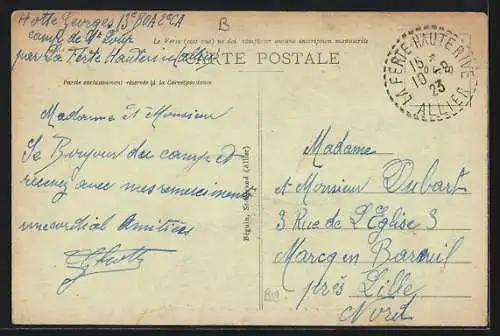 Hotte Georges 13e BOA 2e CA
camp de St Loup
par La Ferté Hauterive (Allier)
B
Le Verso (côté vue) ne doit comporter aucune inscription manuscrite
CARTE POSTALE
Partie exclusivement réservée à la Correspondance
LA FERTÉ-HAUTERIVE
15
10-8
23
ALLIER
Madame et Monsieur
Le Bonjour du camp et
recevez avec mes remerciements
une cordial Amitiés
GHotte
Béguin, St-Pourçain (Allier)
Madame
et Monsieur Dubart
3 Rue de L'Eglise 3
Marcq en Barœuil
près Lille
Nord